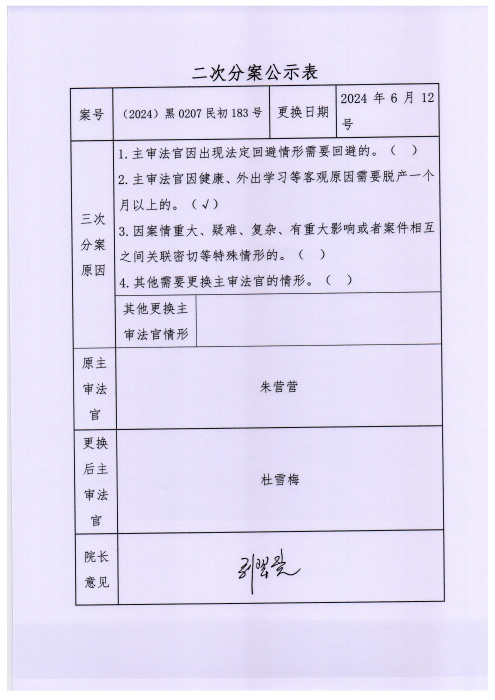 二次分案公示表
案号
（2024）黑 0207 民初 183 号
更换日期
2024 年 6 月 12
号
三次
分案
原因
1.主审法官因出现法定回避情形需要回避的。（　）
2.主审法官因健康、外出学习等客观原因需要脱产一个
月以上的。（√）
3.因案情重大、疑难、复杂、有重大影响或者案件相互
之间关联密切等特殊情形的。（　）
4.其他需要更换主审法官的情形。（　）
其他更换主
审法官情形
原主
审法
官
朱营营
更换
后主
审法
官
杜雪梅
院长
意见